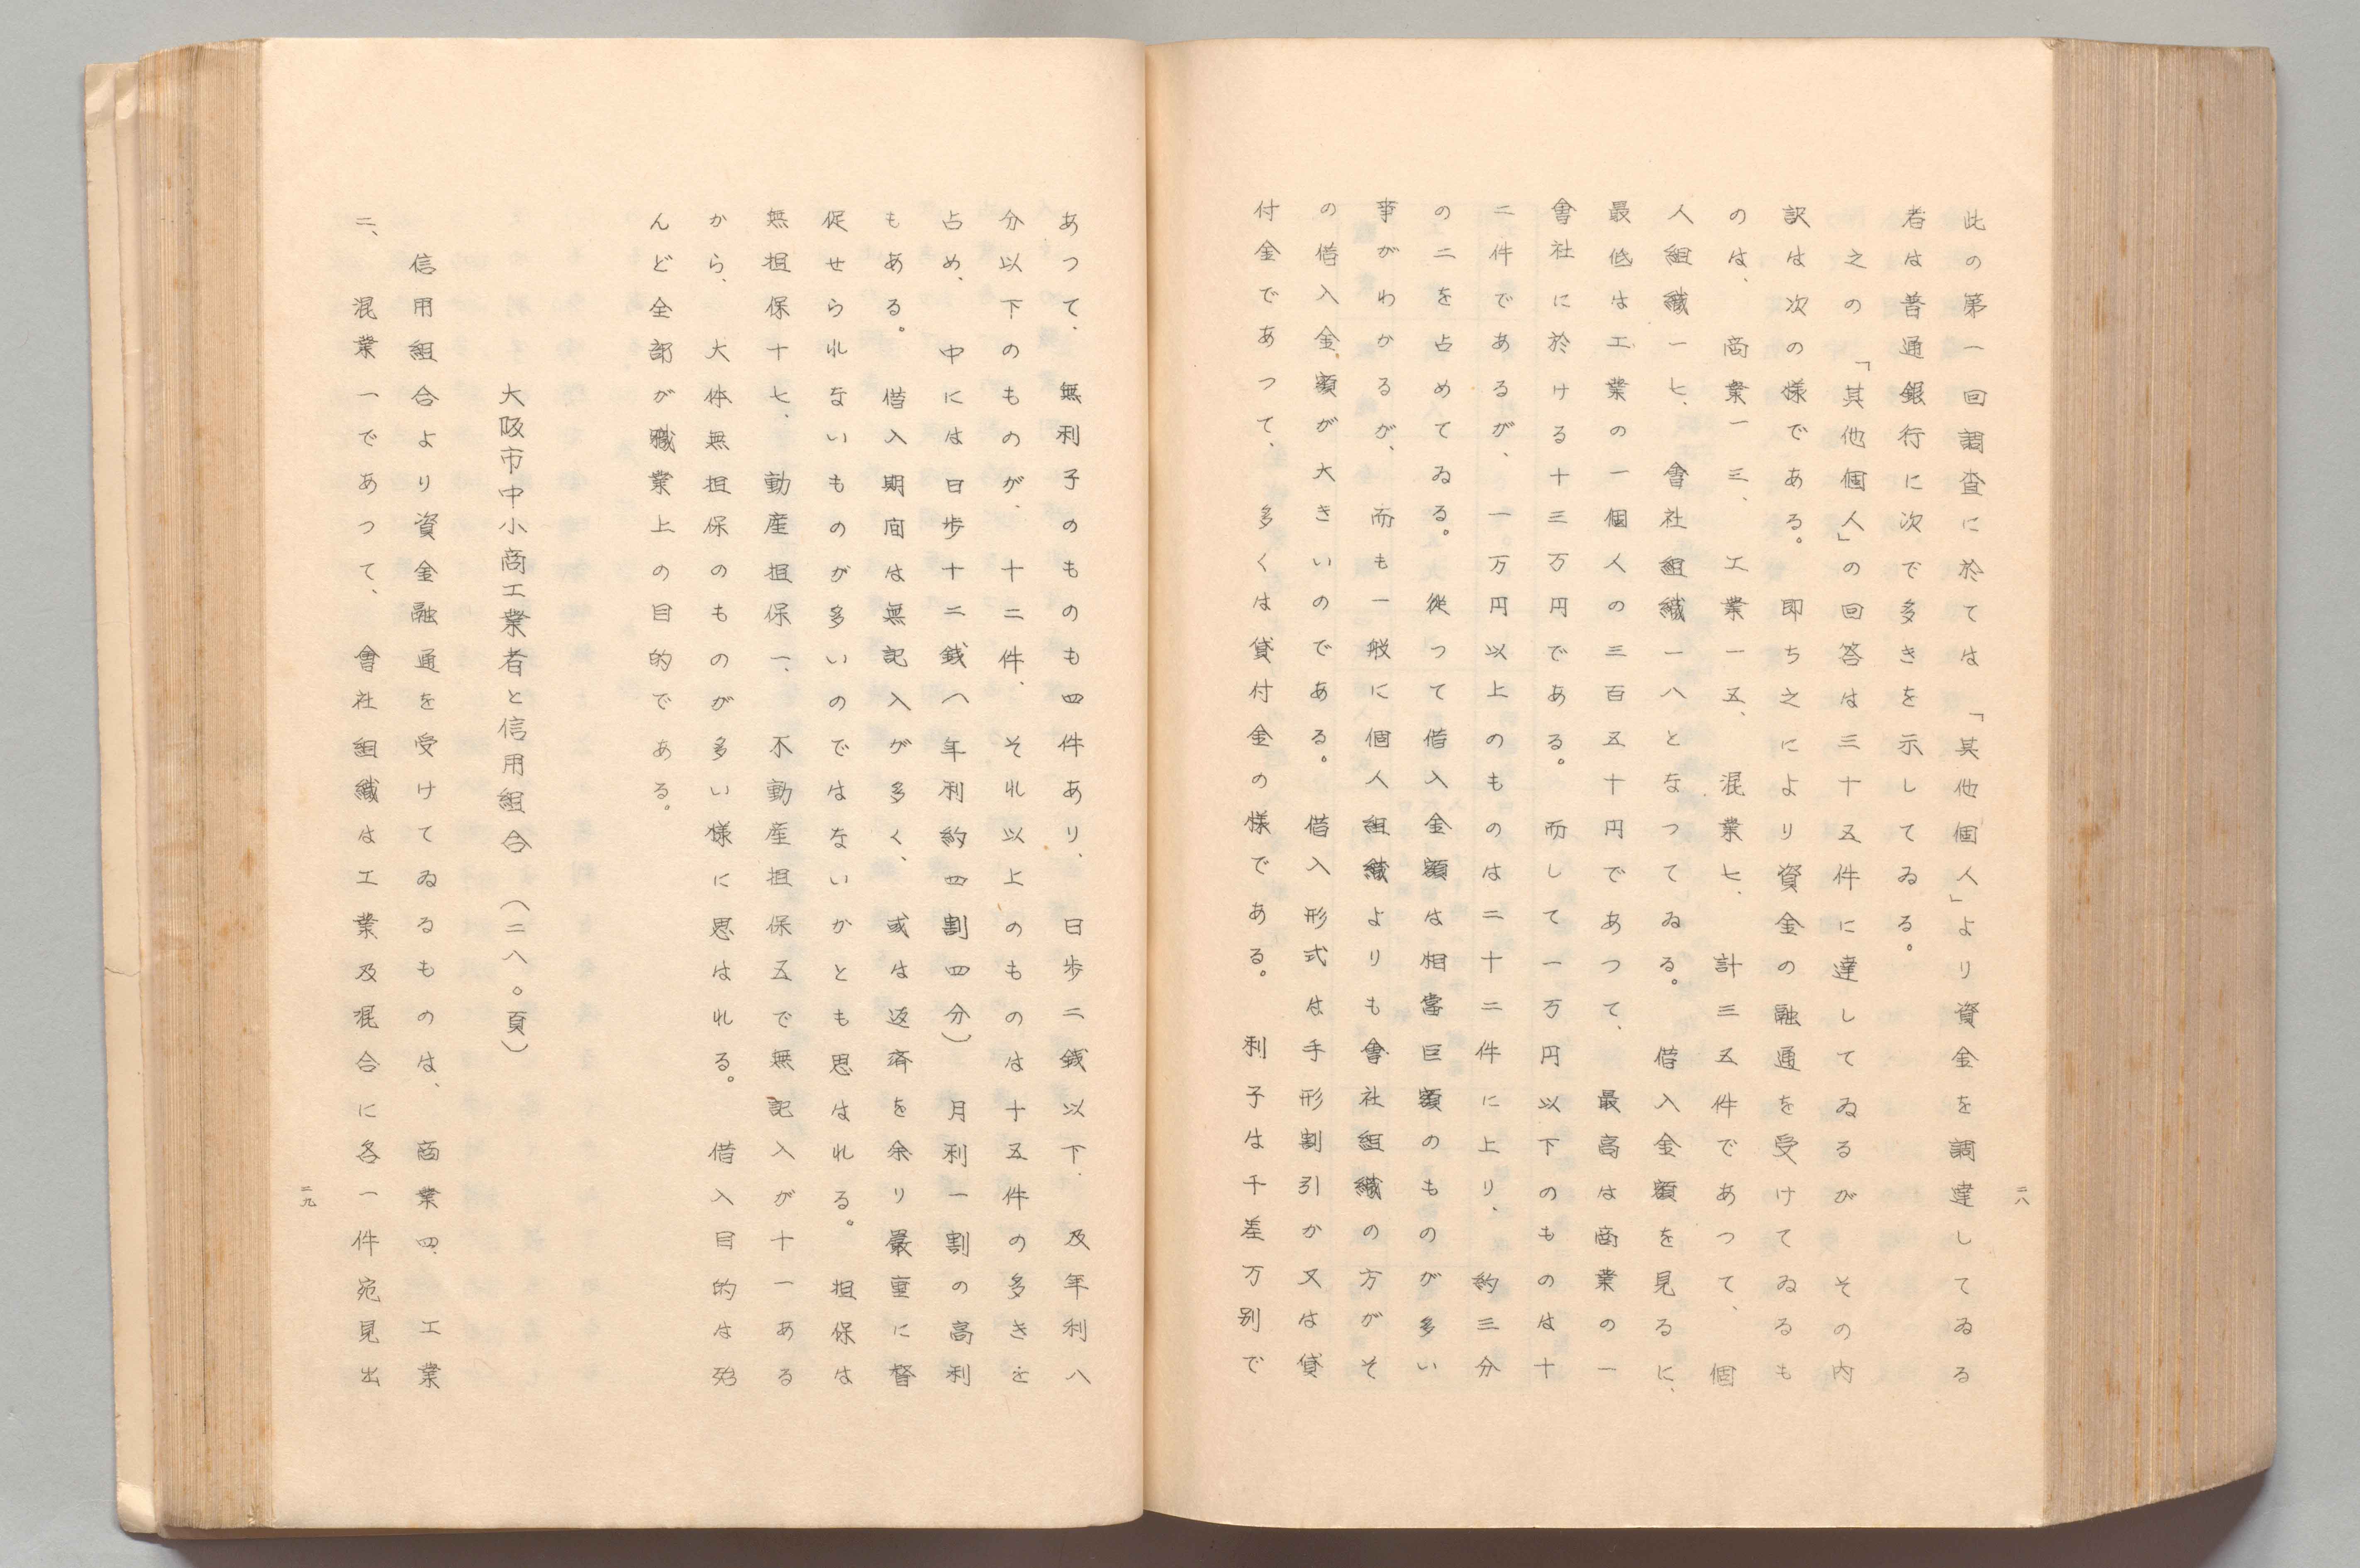 二八
此の第一回調査に於ては「其他個人」より資金を調達してゐる
者は普通銀行に次で多きを示してゐる。
之の「其他個人」の回答は三十五件に達してゐるが その内
訳は次の様である。即ち之により資金の融通を受けてゐるも
のは、商業一三、工業一五、混業七、計三五件であつて、個
人組織一七、會社組織一八となつてゐる。借入金額を見るに、
最低は工業の一個人の三百五十円であつて、最高は商業の一
會社に於ける十三万円である。而して一万円以下のものは十
二件であるが、一万円以上のものは二十二件に上り、約三分
の二を占めてゐる。従つて借入金額は相當巨額のものが多い
事がわかるが、而も一般に個人組織よりも會社組織の方がそ
の借入金額が大きいのである。借入形式は手形割引か又は貸
付金であつて、多くは貸付金の様である。利子は千差万別で
あつて、無利子のものも四件あり、日歩二銭以下、及年利八
分以下のものが、十二件、それ以上のものは十五件の多きを
占め、中には日歩十二銭(年利約四割四分)月利一割の高利
もある。借入期间は無記入が多く、或は返済を余り嚴重に督
促せられないものが多いのではないかとも思はれる。担保は
無担保十七、動産担保一、不動産担保五で無記入が十一ある
から、大体無担保のものが多い様に思はれる。借入目的は殆
んど全部が職業上の目的である。
大阪市中小商工業者と信用組合(二八〇頁)
信用組合より資金融通を受けてゐるものは、商業四、工業
二、混業一であつて、會社組織は工業及混合に各一件宛見出
二九